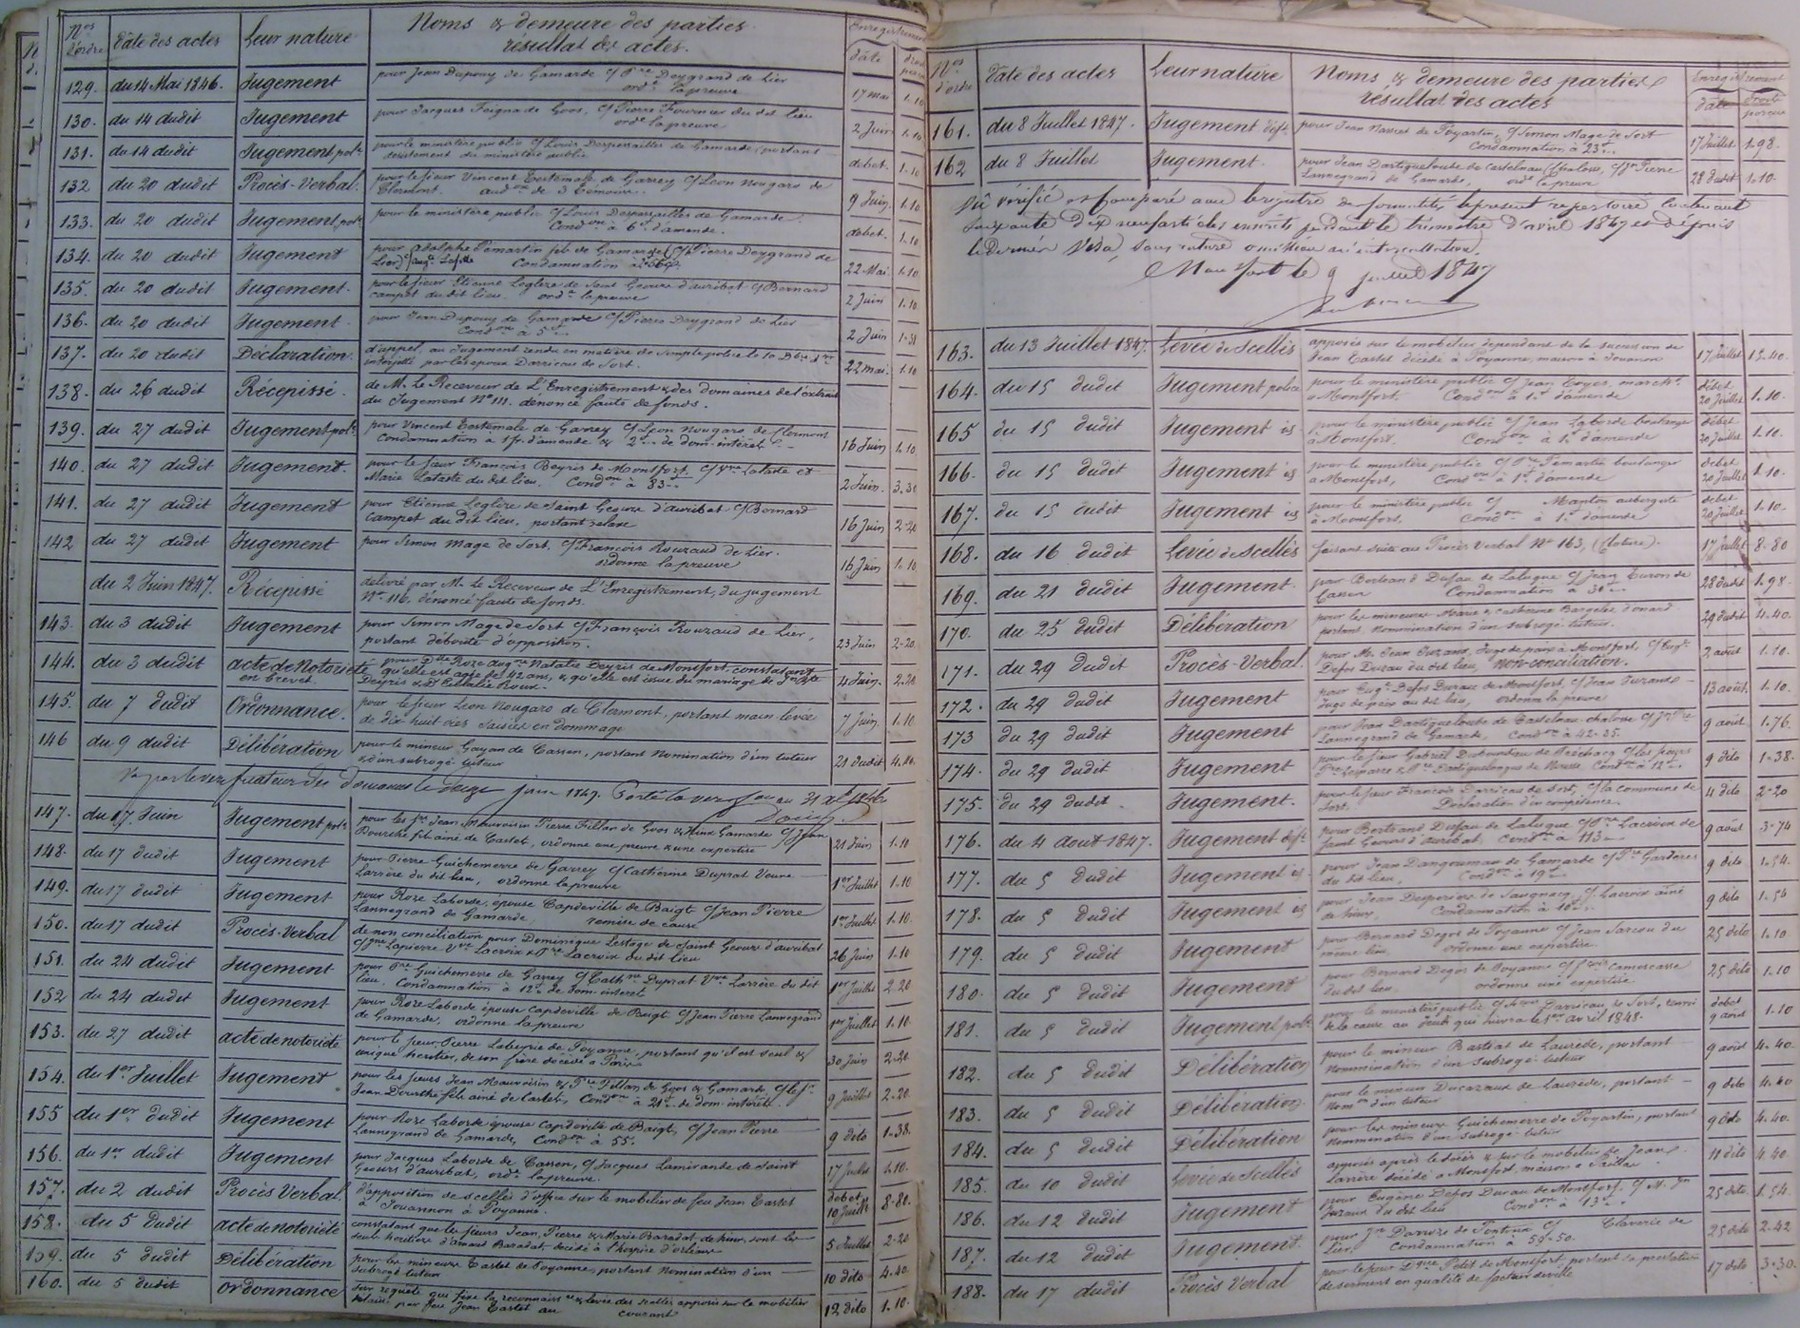 Nos d'ordre
Date des actes
Leur nature
Noms & demeure des parties
résultat des actes.
Enregistrement
date
129. du 14 Mai 1846. Jugement
pour Jean Dupouy de Gamarde c/ Pre Deygrand de Lier
orde la preuve
17 mai 1.10
130. du 14 dudit Jugement
pour Jacques Faigna de Goos, c/ Pierre Fournier du dit lieu
orde la preuve
2 Juin 1.10
131. du 14 dudit Jugement polce
pour le ministère public c/ Louis Despersailles de Gamarde, portant
desistement du ministère public
debet. 1.10
132 du 20 dudit Procès-Verbal.
pour le sieur Vincent Tastemale de Garrey c/ Léon Nougaro de
Clermont. audon de 3 témoins.
9 Juin. 1.10
133. du 20 dudit Jugement polce
pour le ministère public c/ Louis Despersailles de Gamarde.
Condon à 6f d'amende.
debet. 1.10
134. du 20 dudit Jugement
pour Adolphe Pemartin fils de Gamarde c/ Pierre Deygrand de
Lier Condamnation à
22 Mai. 1.10
135. du 20 dudit Jugement.
pour le sieur Etienne Leglize de Saint Geours d'auribat c/ Bernard
Campet du dit lieu. orde la preuve
2 Juin 1.10
136. du 20 dudit Jugement.
pour Jean Dupouy de Gamarde c/ Pierre Deygrand de Lier
Condon à 5f
2 Juin 1.31
137. du 20 dudit Déclaration.
d'appel, au Jugement rendu en matière de simple police le 10 Dbre dr
interjetté par les epoux Darricau de Sort.
22 mai. 1.10
138. du 26 dudit Récépissé.
de M. Le Receveur de L'Enregistrement & des domaines de l'extrait
du Jugement No 111. dénoncé faute de fonds.
139. du 27 dudit Jugement polce
pour Vincent Tastemale de Garrey c/ Léon Nougaro de Clermont
Condamnation à 1f. d'amende & 2f de dom. intérêt
16 Juin 1.10
140. du 27 dudit Jugement.
pour le sieur François Beyris de Montfort c/ Vve Lataste et
Marie Lataste du dit lieu. Condon à 83f
2 Juin. 3.30
141. du 27 dudit Jugement
pour Etienne Leglize de Saint Geours d'auribat c/ Bernard
Campet du dit lieu. portant relaxe
16 Juin 2.20
142 du 27 dudit Jugement
pour Simon Mage de Sort. c/ François Rouzaud de Lier.
ordonne la preuve
16 Juin 1.10
du 2 Juin 1847. Récépissé
délivré par M. le Receveur de L'Enregistrement, du jugement
No 116. dénoncé faute de fonds.
143. du 3 dudit Jugement
pour Simon Mage de Sort c/ François Rouzaud de Lier,
portant déboute d'opposition.
23 Juin 2.20.
144. du 3 dudit acte de notoriété
en brevet.
pour Dlle Roze Augne Natalie Deyris de Montfort, constatant
qu'elle est agée de 42 ans, & qu'elle est issue du mariage de Jn Bte
Deyris & D Eulalie Roux.
4 Juin. 2.20
145. du 7 dudit Ordonnance.
pour le sieur Léon Nougaro de Clermont, portant main levée
de dix huit oies saisies en dommage
7 Juin. 1.10
146 du 9 dudit Délibération
pour le mineur Gayan de Cassen, portant Nomination d'un tuteur
& d'un subrogé tuteur
21 dudit 4.40
Vu par le vérificateur des Domaines le Seize juin 1847.
147. du 17. Juin Jugement polce
pour les Srs Jean Mauvoisin Pierre Fillan de Goos & vieux Gamarde c/ Jean
Dourthe fils ainé de Castets, ordonne une preuve & une expertise
21 Juin 1.10
148. du 17 dudit Jugement
pour Pierre Guichemerre de Garrey c/ Catherine Duprat Veuve
Larrère du dit lieu, ordonne la preuve
1er Juillet 1.10
149. du 17 dudit Jugement
pour Roze Laborde, épouse Capdeville de Baigt c/ Jean Pierre
Lannegrand de Gamarde, remise de cause
1er Juillet 1.10.
150. du 17 dudit Procès-Verbal
de non conciliation pour Dominique Lestage de Saint Geours d'auribat
c/ Lapierre Vve Lacroix & Pre Lacroix du dit lieu
26 Juin 1.10
151. du 24 dudit Jugement
pour Pre Guichemerre de Garrey c/ Cathne Duprat Vve Larrère du dit
lieu. Condamnation à 12f de dom. intérêt
1er Juillet 2.20
152 du 24 dudit Jugement
pour Roze Laborde épouse Capdeville de Baigt c/ Jean Pierre Lannegrand
de Gamarde, ordonne la preuve
1er Juillet 1.10.
153. du 27 dudit acte de notoriété
pour le sieur Pierre Labeyrie de Poyanne, portant qu'il est seul &
unique héritier, de son frère décédé à Paris
30 Juin 2.20
154. du 1er Juillet Jugement
pour les sieurs Jean Mauvoisin & Pre Fillan de Goos & Gamarde c/ le Sr
Jean Dourthe fils ainé de Castets, Condon à 21f de dom. intérêts.
9 Juillet 2.20.
155 du 1er dudit Jugement
pour Roze Laborde épouse Capdeville de Baigt, c/ Jean Pierre
Lannegrand de Gamarde, Condon à 55f.
9 dito 1.38.
156. du 1er dudit Jugement
pour Jacques Laborde de Cassen, c/ Jacques Lamirande de Saint
Geours d'auribat, orde la preuve.
17 Juillet 1.10.
157. du 2 dudit Procès Verbal.
d'apposition de scellés d'office sur le mobilier de feu Jean Castet
à Jouannon à Poyanne.
debet 10 Juillet 8.80.
158. du 5 Dudit acte de notoriété
constatant que les sieurs Jean, Pierre & Marie Baradat de hinx, sont les
seuls héritiers d'Arnaud Baradat, décédé à l'hospice d'orléans
5 Juillet 2.20
159. du 5 dudit Délibération
pour les mineurs Castet de Poyanne, portant Nomination d'un
subrogé tuteur
10 dito 4.40.
160. du 5 dudit ordonnance
sur requete que fixe la reconnaissce & levée des scellés apposés sur le mobilier
par feu Jean Castet au courant
12 dito 1.10.
Nos d'ordre
Date des actes
Leur nature
Noms & demeure des parties
résultat des actes
Enregistrement
date
droits perçus
161. du 8 Juillet 1847. Jugement deft.
pour Jean Nassiet de Poyartin, c/ Simon Mage de Sort
Condamnation à 23f
17 Juillet 1.98.
162 du 8 Juillet Jugement.
pour Jean Dartiguelouée de Castelnau Chalosse, c/ Jn Pierre
Lannegrand de Gamarde, orde la preuve
28 dudit 1.10.
Vu vérifié et comparé avec le registre de formalités le present repertoire contenant
soixante dix neuf articles inscrits pendant le trimestre d'avril 1847 et depuis
le dernier Visa, sans rature omission ni intercallation.
Montfort le 9 juillet 1847
163. du 13 Juillet 1847. Levée de Scellés
apposés sur le mobilier dependant de la succession de
Jean Castet décédé à Poyanne, maison à Jouanon
17 Juillet 12.40.
164. du 15 dudit Jugement police
pour le ministère public c/ Jean Coyes, marchd.
a Montfort, Condon à 1f d'amende
débet 20 Juillet 1.10.
165 du 15 dudit Jugement is
pour le ministère public c/ Jean Laborde boulanger
à Montfort. Condon à 1f d'amende
débet 20 Juillet 1.10.
166. du 15 dudit Jugement is
pour le ministère public c/ Pre Pemartin boulanger
a Montfort, Condon à 1f d'amende
debet 20 Juillet 1.10.
167. du 15 dudit Jugement is
pour le ministère public c/ Manton aubergiste
à Montfort, Condon à 1f d'amende
debet 20 Juillet 1.10.
168. du 16 dudit Levée de Scellés
faisant suite au Procès Verbal No 163, (Cloture).
17 Juillet 8.80
169. du 21 dudit Jugement.
pour Bertrand Dufau de Laluque c/ Jean Turon de
Cassen Condamnation à 30f
28 dudit 1.98.
170. du 25 dudit Délibération
pour les mineures Marie & Catherine Bargelès d'onard
portant Nommination d'un subrogé tuteur.
29 dudit 4.40.
171. du 29 dudit Procès-Verbal.
pour Mr. Jean Juzaux, Juge de paix à Montfort, c/ Eugne
Defos Durau du dit lieu, non-conciliation.
2 août 1.10.
172. du 29 dudit Jugement
pour Eugne Defos Durau de Montfort, c/ Jean Juzaux
Juge de paix au dit lieu, ordonne la preuve
13 août. 1.10.
173 du 29 dudit Jugement
pour Jean Dartiguelouée de Castelnau chalosse c/ Jn Pre
Lannegrand de Gamarde, Condon à 42.35.
9 août 1.76.
174. du 29 dudit Jugement
pour le sieur Gabriel de Préchacq c/ les sieurs
Pre Lamarre & Dartiguelongue de Nousse, Condon à 12f
9 dito 1.38.
175. du 29 dudit. Jugement.
pour le sieur François Darricau de Sort, c/ la commune de
Sort. Déclaration d'incompétence.
4 dito 2.20
176. du 4 août 1847. Jugement deft.
pour Bertrand Dufau de Laluque c/ Pre Lacroix de
Saint Geours d'auribat, Condon à 113f
9 août 3.74
177. du 5 Dudit Jugement is
pour Jean Dangoumau de Gamarde c/ Pre Gardères
du dit lieu, Condon à 19f
9 dito 1.54.
178. du 5 Dudit Jugement is
pour Jean Desperiès de Saugnacq c/ Lacroix ainé
de hinx, Condamnation à 18f
9 dito 1.54
179. du 5 dudit Jugement
pour Bernard Degos de Poyanne c/ Jean Sarcou du
même lieu, ordonne une expertise
25 dito 1.10
180. du 5 dudit Jugement
pour Bernard Degos de Poyanne c/ Camescasse
du dit lieu. ordonne une expertise
25 dito 1.10
181. du 5 dudit Jugement polce
pour le ministère public c/ Darricau de Sort, renvoi
de la cause au Jeudi qui suivra le 1er avril 1848.
debet 9 août 1.10
182. du 5 dudit Délibération
pour le mineur Bastiat de Laurède, portant
nommination d'un subrogé tuteur
9 août 4.40.
183. du 5 Dudit Délibération.
pour le mineur Ducazaux de Laurède, portant
Nomon d'un tuteur
9 dito 4.40
184. du 5 dudit Délibération
pour les mineurs Guichemerre de Poyartin, portant
Nommination d'un subrogé tuteur
9 dito 4.40.
185. du 10 dudit Levée de Scellés
apposés après le décès & sur le mobilier de Jean
Larrère décédé à Montfort, maison à
11 dito 4.40
186. du 12 dudit Jugement
pour Eugène Defos Durau de Montfort, c/ M. Jn
Juzaux du dit lieu Condon à 13f
25 dito 1.54.
187. du 12 dudit Jugement.
pour Jn Darroze de Pontonx c/ Claverie de
Lier, Condamnation à 59.50.
25 dito 2.42
188. du 17 dudit Procès Verbal
pour le sieur Dque Petit de Montfort, portant sa prestation
de serment en qualité de facteur de ville
17 dito 3.30.